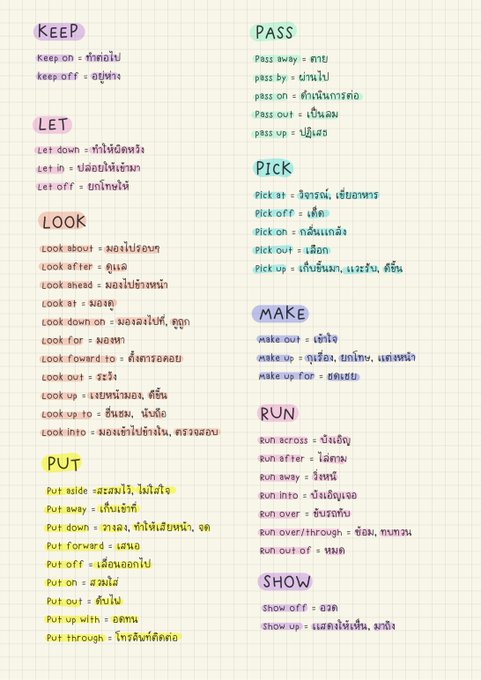 KEEP
Keep on = ทำต่อไป
keep off = อยู่ห่าง
LET
Let down = ทำให้ผิดหวัง
Let in = ปล่อยให้เข้ามา
Let off = ยกโทษให้
LOOK
Look about = มองไปรอบๆ
Look after = ดูแล
Look ahead = มองไปข้างหน้า
Look at = มองดู
Look down on = มองลงไปที่, ดูถูก
Look for = มองหา
Look foward to = ตั้งตารอคอย
Look out = ระวัง
Look up = เงยหน้ามอง, ดีขึ้น
Look up to = ชื่นชม, นับถือ
Look into = มองเข้าไปข้างใน, ตรวจสอบ
PUT
Put aside =สะสมไว้, ไม่ใส่ใจ
Put away = เก็บเข้าที่
Put down = วางลง, ทำให้เสียหน้า, จด
Put forward = เสนอ
Put off = เลื่อนออกไป
Put on = สวมใส่
Put out = ดับไฟ
Put up with = อดทน
Put through = โทรศัพท์ติดต่อ
PASS
Pass away = ตาย
pass by = ผ่านไป
pass on = ดำเนินการต่อ
Pass out = เป็นลม
pass up = ปฏิเสธ
PICK
Pick at = วิจารณ์, เขี่ยอาหาร
Pick off = เด็ด
Pick on = กลั่นแกล้ง
Pick out = เลือก
Pick up = เก็บขึ้นมา, แวะรับ, ดีขึ้น
MAKE
make out = เข้าใจ
make up = กุเรื่อง, ยกโทษ, แต่งหน้า
make up for = ชดเชย
RUN
Run across = บังเอิญ
Run after = ไล่ตาม
Run away = วิ่งหนี
Run into = บังเอิญเจอ
Run over = ขับรถทับ
Run over/through = ซ้อม, ทบทวน
Run out of = หมด
SHOW
Show off = อวด
Show up = แสดงให้เห็น, มาถึง